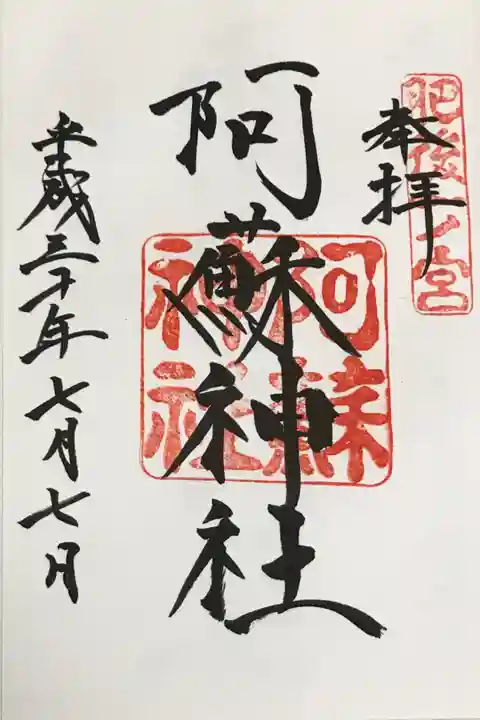 肥後一宮
奉拝
阿蘇神社
阿蘇神社
平成三十年七月七日